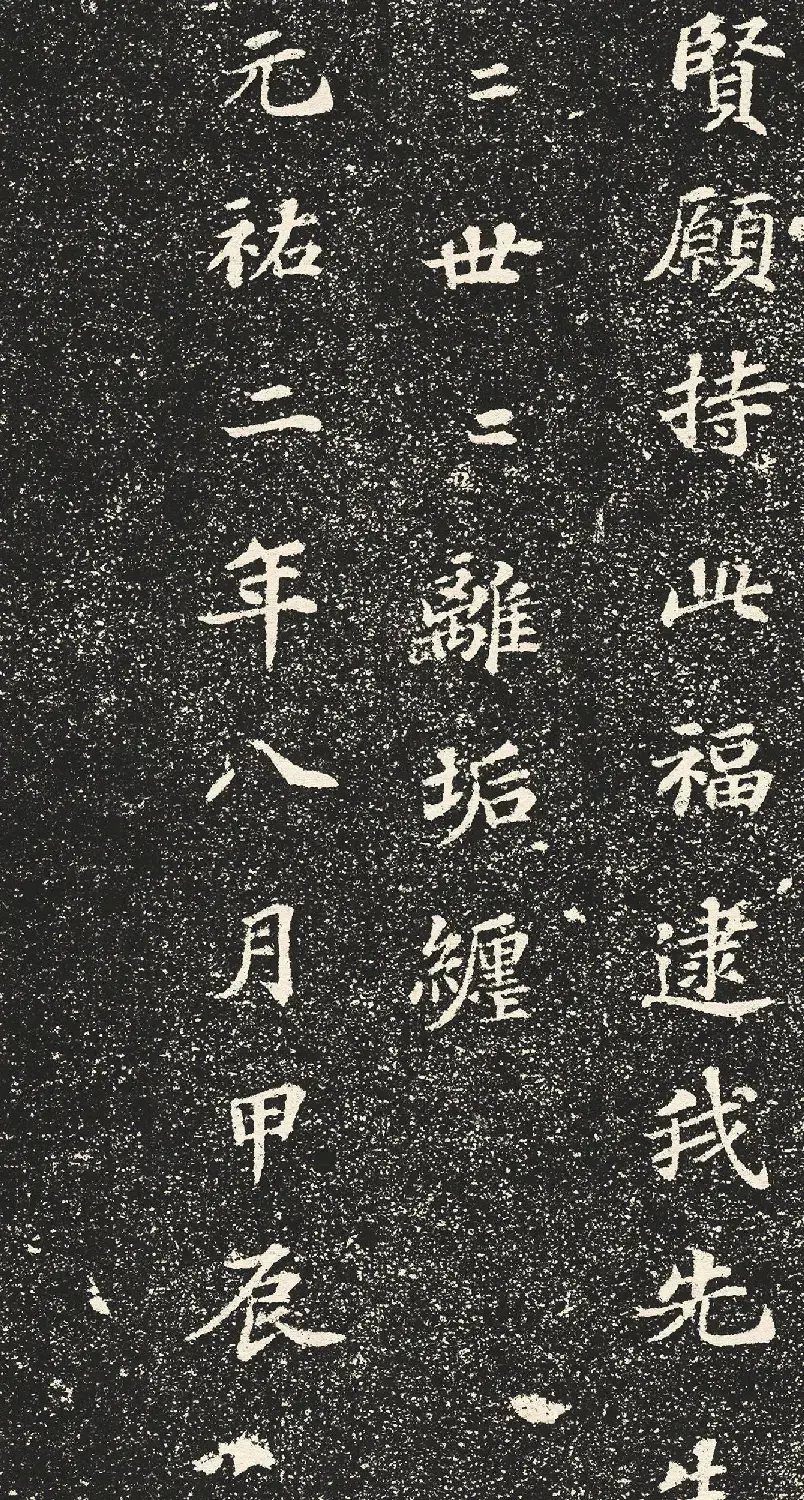 賢願持此福逮我先
二世二離垢纏
元祐二年八月甲辰